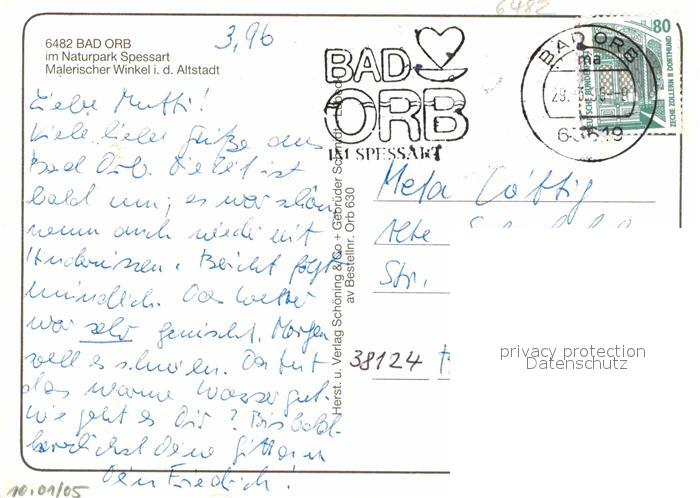 6482
6482 BAD ORB
im Naturpark Spessart
Malerischer Winkel i. d. Altstadt
3,96
BAD
ORB
IM SPESSART
BAD ORB
63619
80
DEUTSCHE BUNDESPOST
ZECHE ZOLLERN II DORTMUND
Liebe Mutti!
Viele liebe Grüße aus
Bad Orb. Die Zeit ist
bald um; es war schön
wenn auch wieder mit
Hindernissen. Bericht folgt
mündlich. Das Wetter
war sehr gemischt. Morgen
soll es schneien. Da tut
das warme Wasser gut.
Wie geht es Dir? Bis bald.
herzlichst Deine
Dein Friedrich!
Herst. u. Verlag Schöning & Co + Gebrüder Schmidt
av Bestellnr. Orb 630
Meta
Alte
Str.
38124
privacy protection
Datenschutz
10.01/05